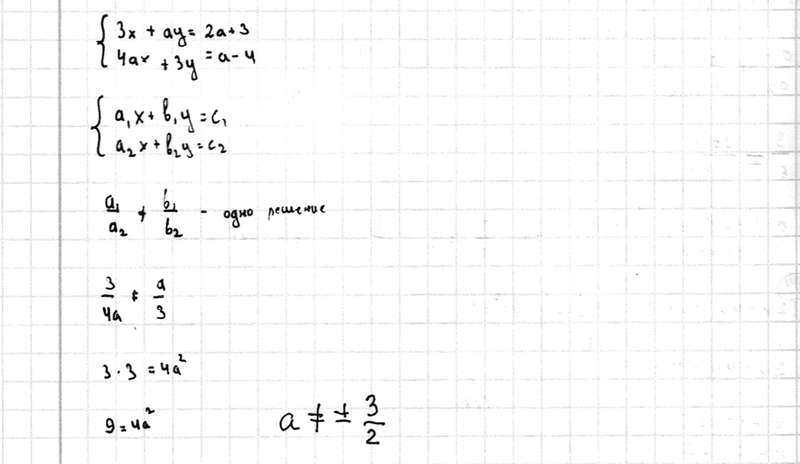 3x + ay = 2a + 3
4ax + 3y = a - 4
a₁x + b₁y = c₁
a₂x + b₂y = c₂
a₁/a₂ ≠ b₁/b₂ - одно решение
3/4a ≠ a/3
3 · 3 = 4a²
9 = 4a²
a ≠ ± 3/2